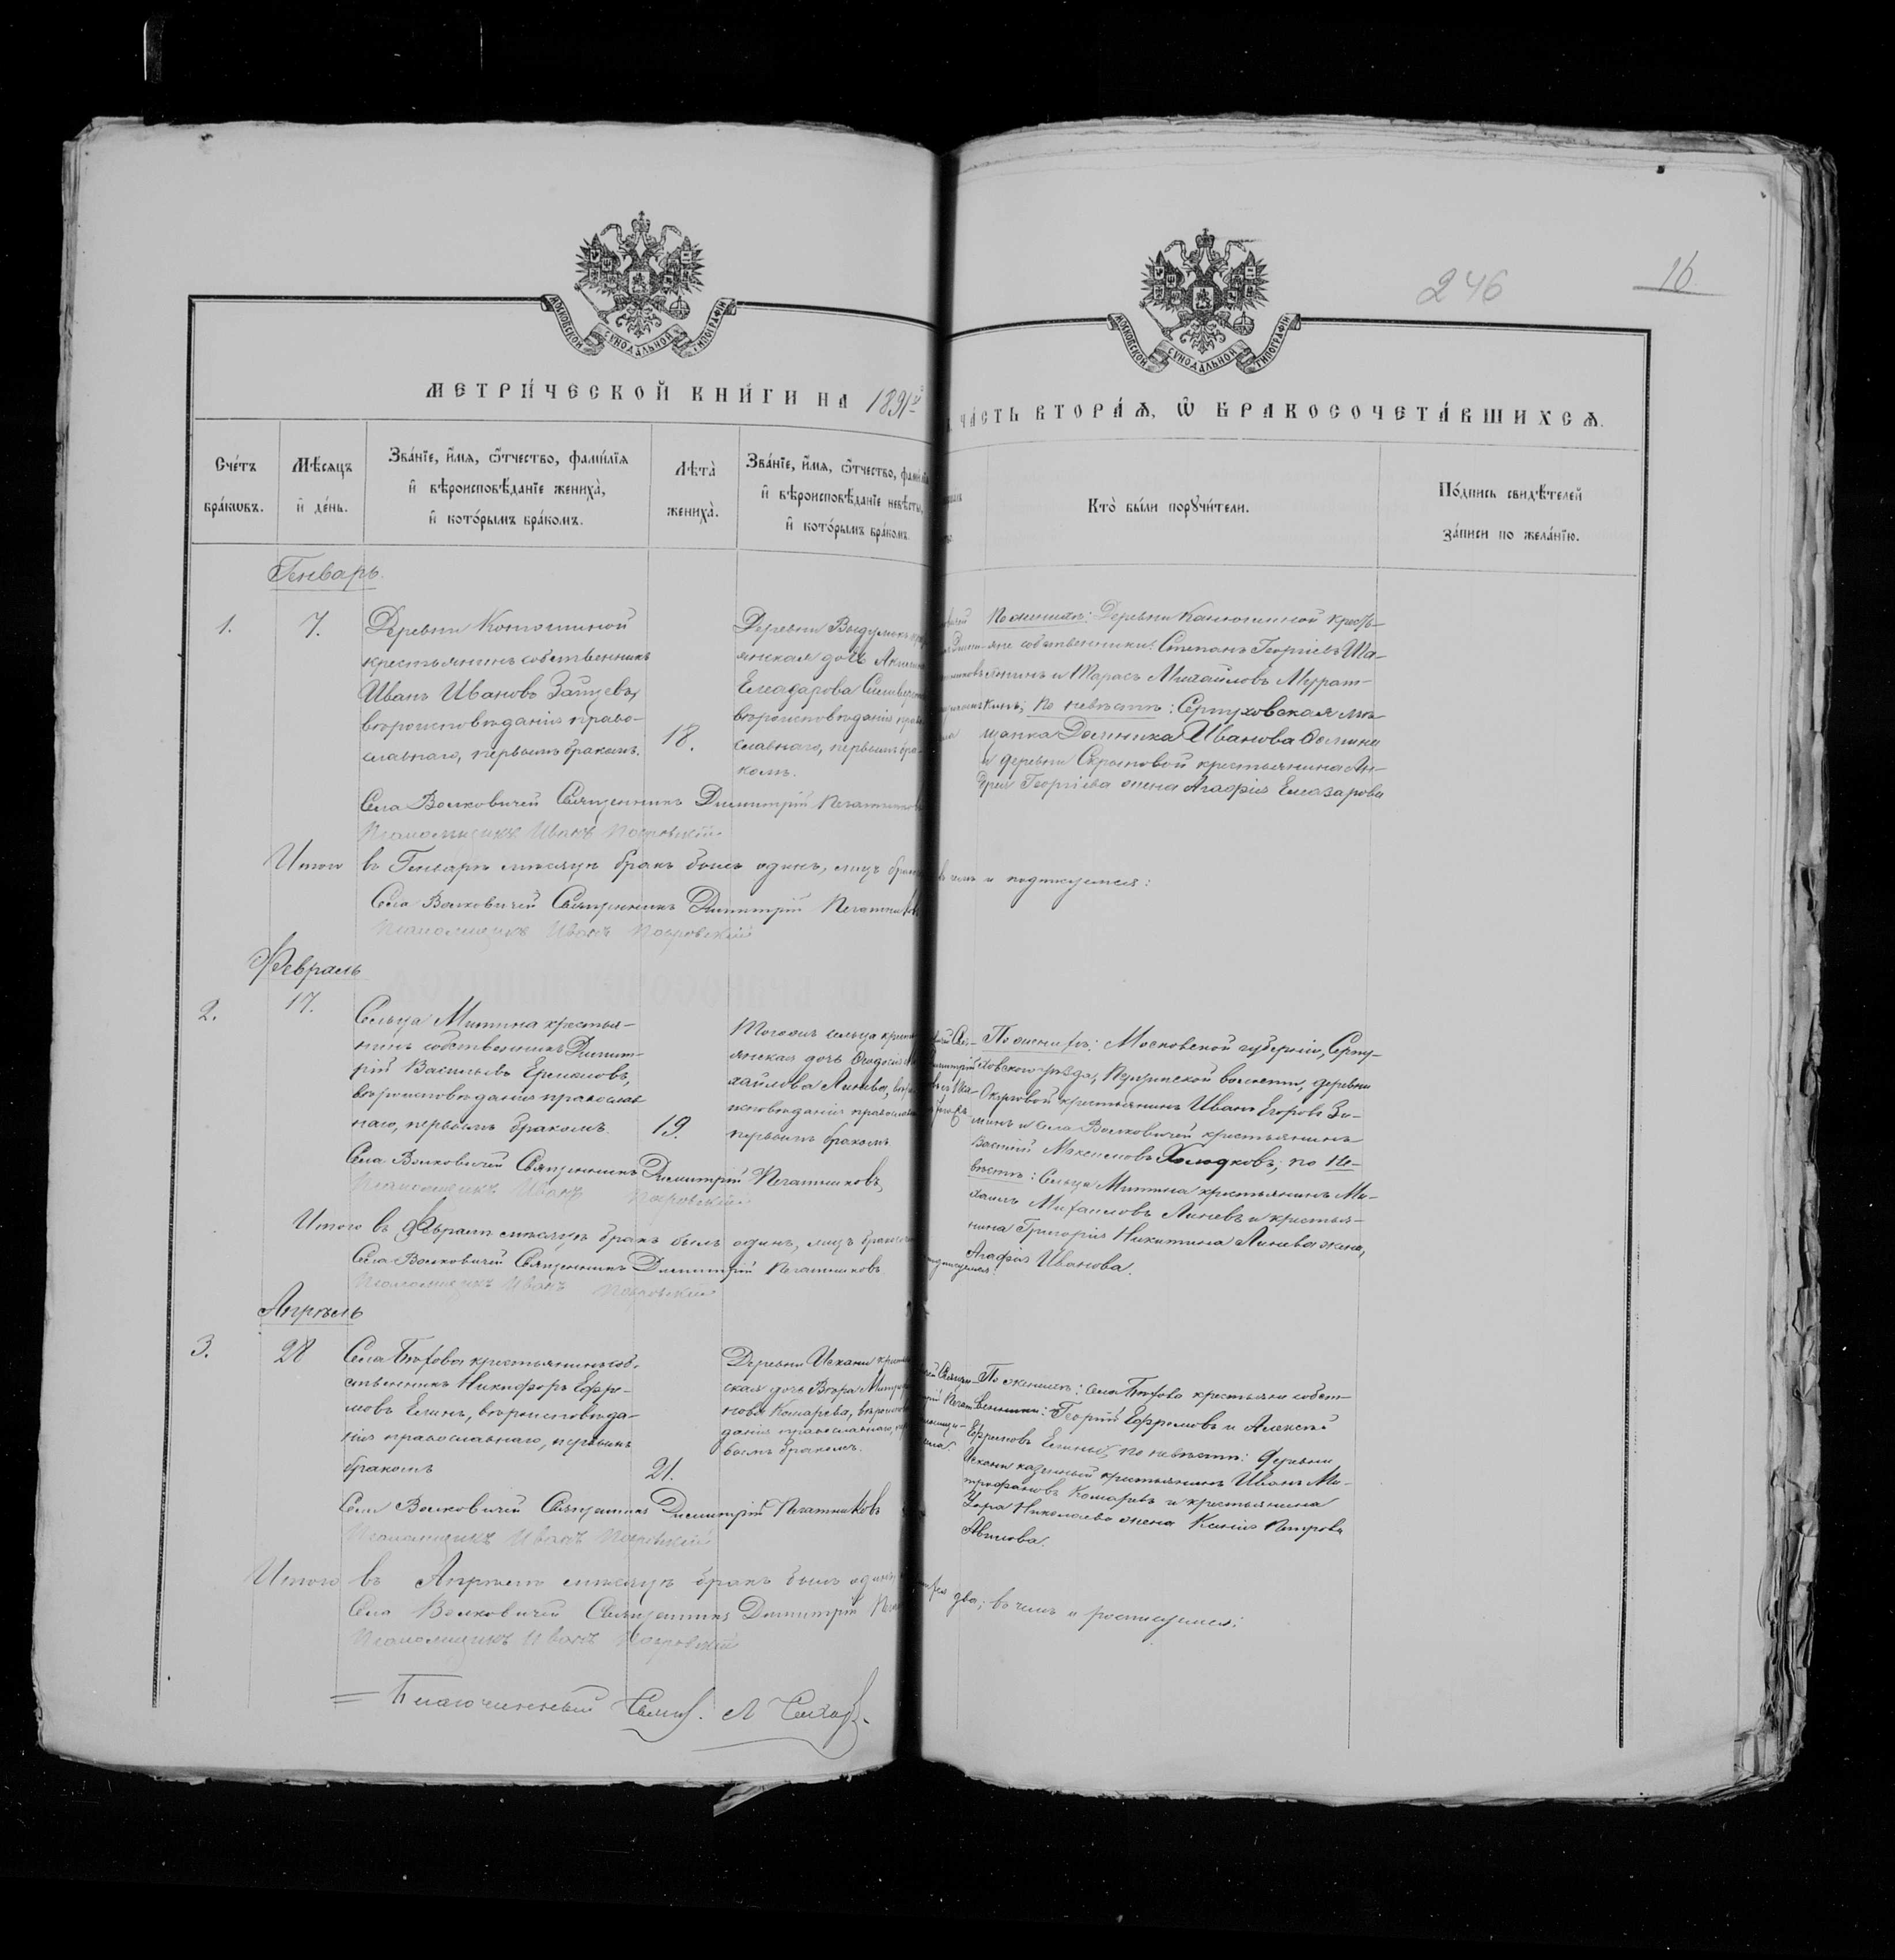 246
16.
МОСКОВСКОЙ СУНОДАЛЬНОЙ ТИПОГРАФІИ
МОСКОВСКОЙ СУНОДАЛЬНОЙ ТИПОГРАФІИ
МЕТРИ́ЧЕСКОЙ КНИ́ГИ НА 1891й
ЧА́СТЬ ВТОРА́Ѧ, Ѿ БРАКОСОЧЕТА́ВШИХСѦ.
Сче́тъ бра́кѡвъ.
Мѣ́сяцъ и҆ де́нь.
Зва́нїе, и҆́мѧ, ѻ҆́тчество, фамѝлїѧ и҆ вѣроисповѣ́данїе жениха̀, и҆ кото́рымъ бра́комъ.
Лѣта̀ жениха̀.
Зва́нїе, и҆́мѧ, ѻ҆́тчество, и҆ вѣроисповѣ́данїе невѣ́сты, и҆ кото́рымъ бра́комъ.
Кто̀ бы́ли порꙋчи́тели.
По́дпись свидѣ́телей за́писи по жела́нїю.
Генварь.
1.
7.
Деревни Конюшиной
крестьянинъ собственникъ
Иванъ Ивановъ Зайцевъ,
вѣроисповѣданія право-
славнаго, первымъ бракомъ.
18.
Деревни
янская дочь
Елеазарова
вѣроисповѣданія
славнаго, первымъ бра-
комъ.
По женихѣ: Деревни Конюшиной кресть-
яне собственники: Степанъ Георгіевъ Ша-
и Тарасъ Михайловъ Мурат-
кинъ; по невѣстѣ: Серпуховская мѣ-
щанка Домника Иванова
и деревни крестьянина Ан-
дрея Георгіева жена Агафія Елеазарова
Села Волковичей Священникъ Димитрій Печатниковъ
Псаломщикъ Иванъ Покровскій
Итого въ Генварѣ мѣсяцѣ бракъ былъ одинъ, лицъ
въ чемъ и подписуемся:
Села Волковичей Священникъ Димитрій Печатниковъ
Псаломщикъ Иванъ Покровскій
Февраль
2.
17.
Сельца Митина крестья-
нинъ собственникъ Димит-
рій Васильевъ Ермоловъ,
вѣроисповѣданія православ-
наго, первымъ бракомъ.
19.
Тогожъ сельца
янская дочь Ѳеодосія
хайлова Линева,
исповѣданія
первымъ бракомъ
По женихѣ: Московской губерніи, Серпу-
ховского уѣзда, Пущинской волости, деревни
крестьянинъ Иванъ Егоровъ Зи-
минъ и села Волковичей крестьянинъ
Василій Максимовъ Холодковъ; по не-
вѣстѣ: Сельца Митина крестьянинъ Ми-
хаилъ Михаиловъ Линевъ и крестья-
нина Григорія Никитина Линева жена,
Агафія Иванова.
Села Волковичей Священникъ Димитрій Печатниковъ,
Псаломщикъ Иванъ Покровскій
Итого въ Февралѣ мѣсяцѣ бракъ былъ одинъ, лицъ
Села Волковичей Священникъ Димитрій Печатниковъ
Псаломщикъ Иванъ Покровскій
Апрѣль
3.
28
Села Бяхова крестьянинъ соб-
ственникъ Никифоръ Ефре-
мовъ Елинъ, вѣроисповѣда-
нія православнаго, первымъ
бракомъ
21.
Деревни Искани
ская дочь Вѣра
Комарева,
данія православнаго,
вымъ бракомъ.
По женихѣ: Села Бяхова крестьяне собст-
венники: Георгій Ефремовъ и Алексѣй
Ефремовъ Елины, по невѣстѣ: деревни
Искани казенный крестьянинъ Иванъ Ми-
трофановъ Комаревъ и крестьянина
Николаева жена Ксенія Петрова
Авилова.
Села Волковичей Священникъ Димитрій Печатниковъ
Псаломщикъ Иванъ Покровскій
Итого въ Апрѣлѣ мѣсяцѣ бракъ былъ одинъ,
два; въ чемъ и росписуемся:
Села Волковичей Священникъ Димитрій
Псаломщикъ Иванъ Покровскій
Благочинный Свящ.